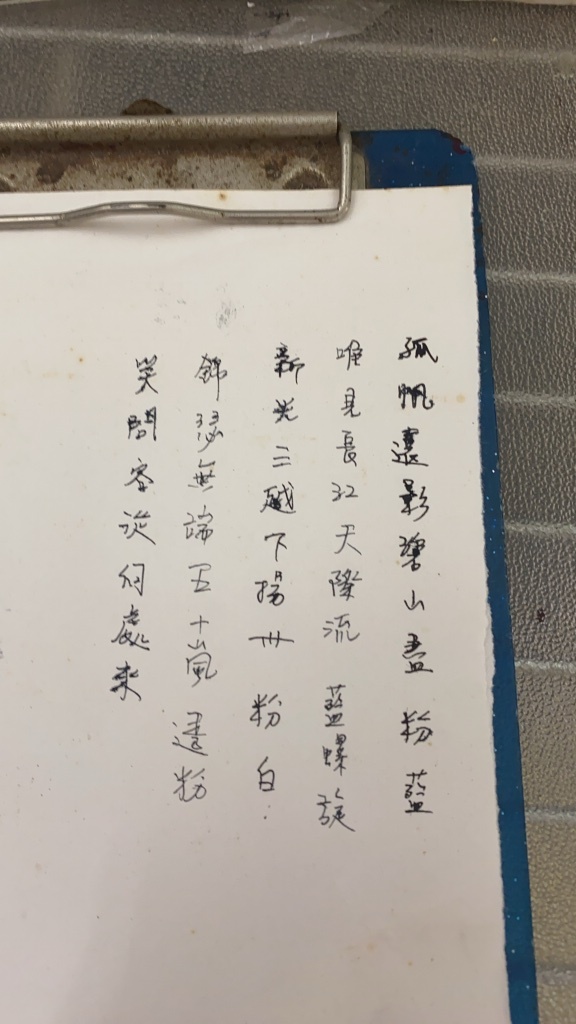 孤帆遠影碧山盡 粉藍
唯見長江天際流 藍螺旋
新光三越下揚州 粉白
錦瑟無端五十嵐 透粉
笑問客從何處來